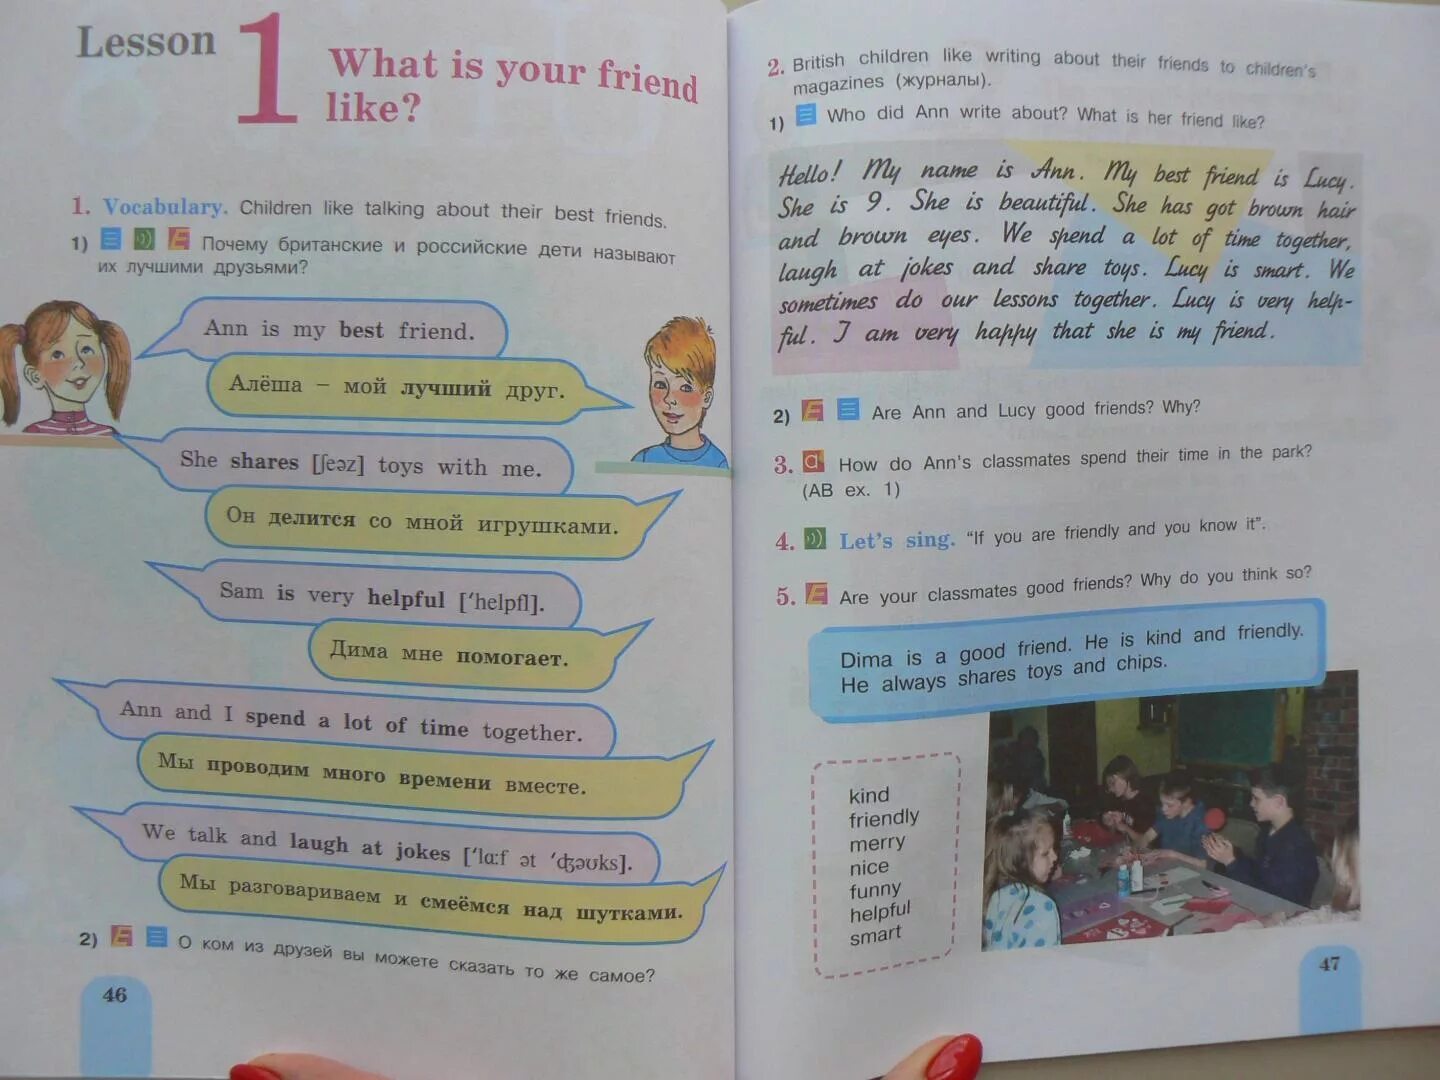 Lesson 1 What is your friend
like?
1. Vocabulary. Children like talking about their best friends.
1) E Почему британские и российские дети называют
их лучшими друзьями?
Ann is my best friend.
Алёша – мой лучший друг.
She shares [ʃeəz] toys with me.
Он делится со мной игрушками.
Sam is very helpful [ʹhelpfl].
Дима мне помогает.
Ann and I spend a lot of time together.
Мы проводим много времени вместе.
We talk and laugh at jokes [ʹlɑ:f ət ʹʤəʊks].
Мы разговариваем и смеёмся над шутками.
2) E О ком из друзей вы можете сказать то же самое?
46
2. British children like writing about their friends to children's
magazines (журналы).
1) Who did Ann write about? What is her friend like?
Hello! My name is Ann. My best friend is Lucy.
She is 9. She is beautiful. She has got brown hair
and brown eyes. We spend a lot of time together,
laugh at jokes and share toys. Lucy is smart. We
sometimes do our lessons together. Lucy is very help-
ful. I am very happy that she is my friend.
2) E Are Ann and Lucy good friends? Why?
3. a How do Ann's classmates spend their time in the park?
(AB ex. 1)
4. Let's sing. “If you are friendly and you know it”.
5. E Are your classmates good friends? Why do you think so?
Dima is a good friend. He is kind and friendly.
He always shares toys and chips.
kind
friendly
merry
nice
funny
helpful
smart
47